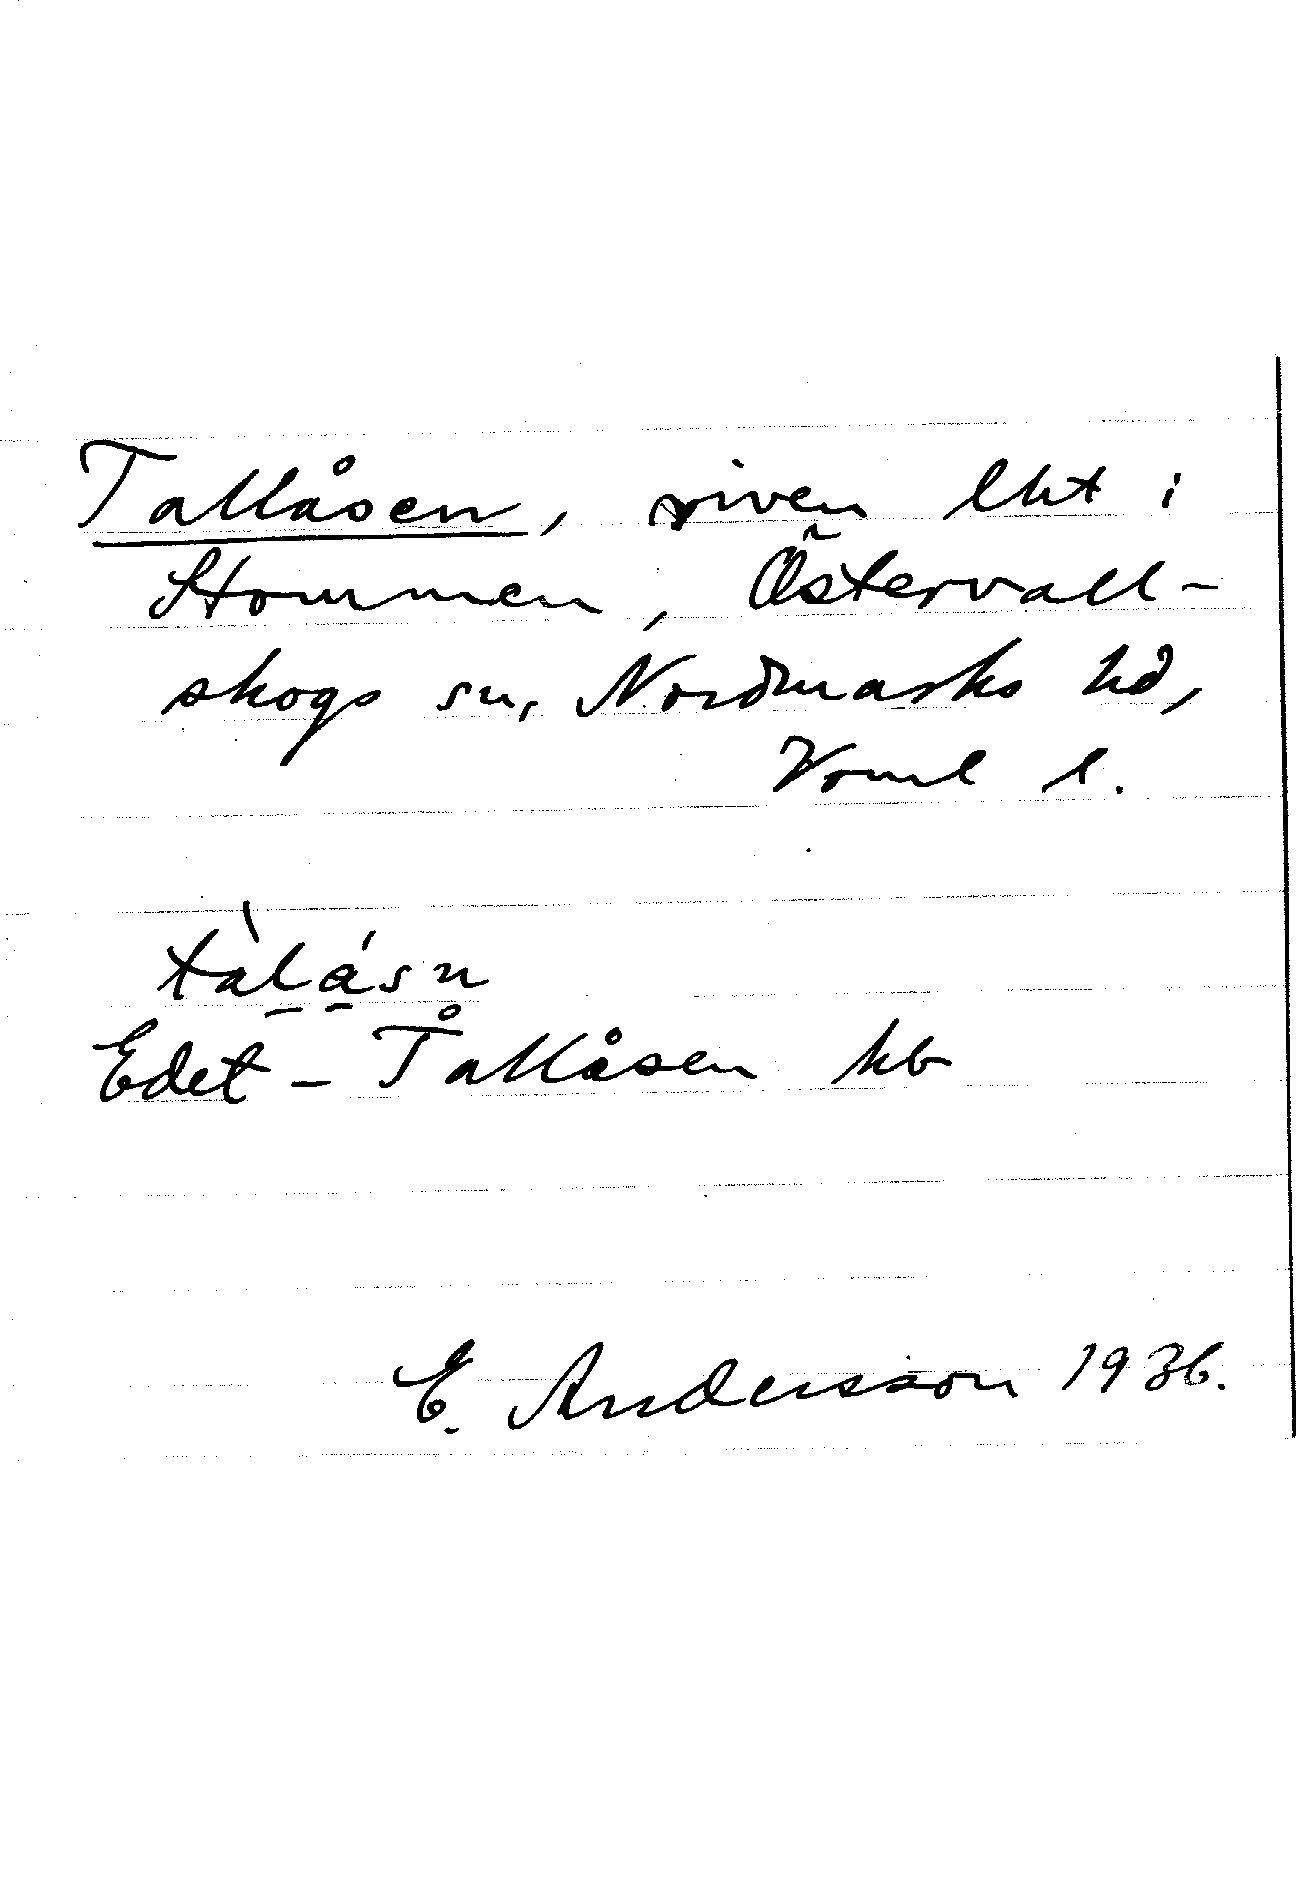 Tallåsen, riven lht i
Stommen, Östervall-
skogs sn, Nordmarks hd,
Verml l.
tàlǻsn
Edet - Tallåsen kb
E. Andersson 1936.